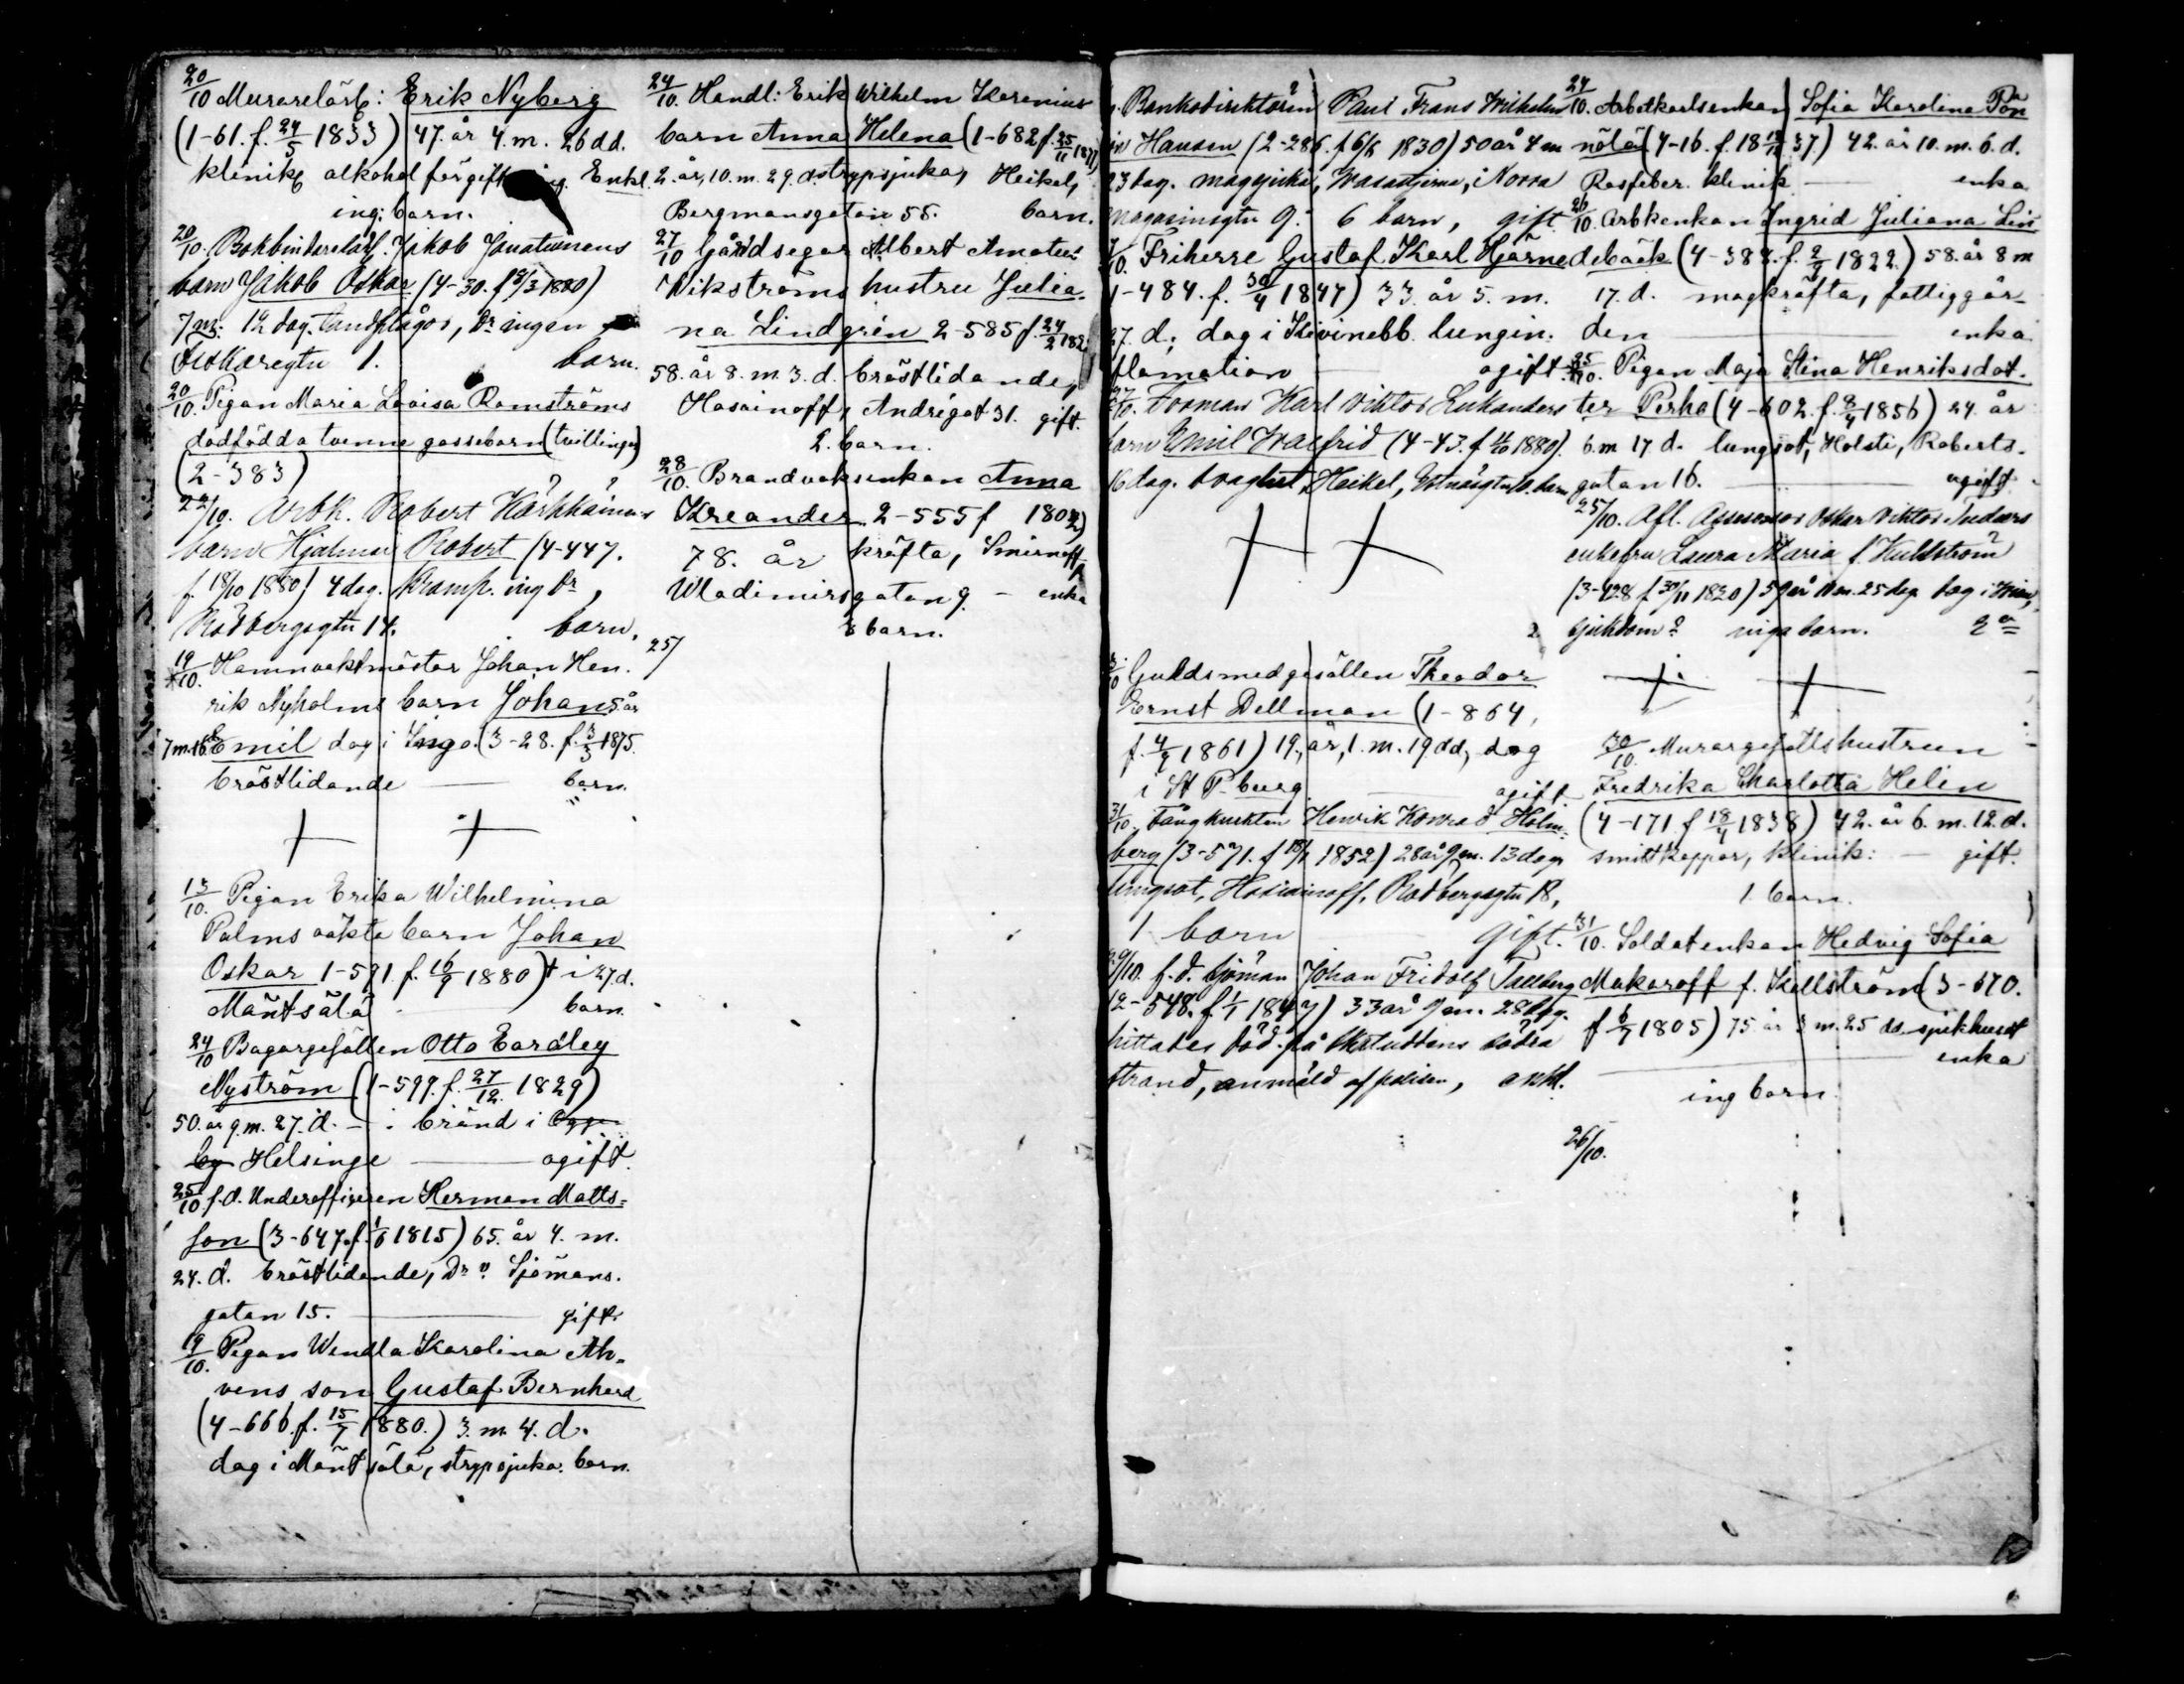 20/10 Murarelärl: Erik Nyberg
(1-61. f. 24/5 1833) 47. år 4. m. 26 dd.
klinik, alkohol förgiftning. Enkl.
ing. barn.
20/10. Bokbinderelärl. Jakob Jonatumens
barn Jakob Oskar (4-30. f 8/3 1880)
7 m: 12 dag. tandplågor, Dr ingen
Fiskaregtn 1. barn.
20/10. Pigan Maria Lovisa Ramströms
dödfödda tvenne gossebarn (tvillingar)
(2-383)
22/10. Arbk. Robert Kärkkäinens
barn Hjalmar Robert (4-447.
f. 18/10 1880) 4 dag. Kramp. ing Dr,
Rödbergsgtn 14. barn.
19/10. Hamnvaktmästar Johan Hen-
rik Nyholms barn Johan 5 år
7 m. 16 d Emil dog i Ingo. (3-28. f. 3/3 1875.
bröstlidande — barn.
13/10. Pigan Erika Wilhelmina
Palms oäkta barn Johan
Oskar 1-591 f. 16/9 1880) † i 27 d.
Mäntsälä — barn
24/10 Bagargesällen Otto Eardley
Nyström (1-599. f. 27/12. 1829)
50. år 9. m. 27. d. — i bränd i
by Helsinge — ogift.
25/10 f.d. Underofficeren Herman Matts-
son (3-647. f. 1/6 1815) 65. år 4. m.
24. d. bröstlidande, Dr ? Sjömans-
gatan 15. — gift.
19/10. Pigan Wendla Karolina Ah-
vens son Gustaf Bernhard
(4-666. f. 15/7 1880.) 3. m. 4. d.
dog i Mäntsälä, strypsjuka. barn.
24/10. Handl: Erik Wilhelm Korenius
barn Anna Helena (1-682 f. 25/11 1877)
2. år, 10. m. 29. d. strypsjuka, Heikel,
Bergmansgatan 55. barn.
27/10 Gårdsegar Albert Amatus
Wikströms hustru Julia-
na Lindgrén 2-585 f. 24/2 182
58. år 8. m. 3. d. bröstlidande,
Hasainoff, Andrégat 31. gift.
2. barn.
28/10. Brandvaksenkan Anna
Kreander 2-555 f 1802)
78. år kräfta, Smirnoff,
Wladimirsgatan 9. — enka
3 barn.
25/
Bankodirektören Paul Frans Wilhelm
Hansen (2-286. f 6/6 1830) 50 år 4 m
23 dag. magsjuka, Wasastjerna, Norra
magasinsgtn 9. 6 barn, gift
/10. Friherre Gustaf Karl Hjärne
1-484. f. 30/4 1847) 33. år 5. m.
27. d; dog i Kivinebb. lungin-
flamation — ogift.
27/10. Forman Karl Viktor Lukanders
barn Emil Walfrid (4-43. f 11/10 1880).
16 dag. svaghet, Heikel, barn
Guldsmedgesällen Theodor
Ernst Dellman (1-864,
f. 4/9 1861) 19, år, 1. m. 19. dd, dog
i St P-burg. — ogift
31/10. Fångknekten Henrik Konrad Holm-
berg (3-571. f 18/1 1852) 28 år 9 m. 13 dag
lungsot, Hasainoff, Rödbergsgtn 18,
1 barn — gift.
29/10. f.d. Sjöman Johan Fridolf Tallberg
(2-548. f. 1/1 1847) 33 år 9 m. 28 dag.
hittades död på Skatuddens södra
strand, anmäld af polisen, enkl.
24/10. Arbetkarlsenkan Sofia Karolina Pön
nölä (4-16. f. 18 18/12 37) 42. år 10. m. 6. d.
Rosfeber. klinik — enka
26/10. Arbkenkan Ingrid Juliana Lin
debäck (4-383. f. 2/9 1822.) 58. år 8 m
17. d. magkräfta, fattiggår-
den — enka
25/10. Pigan Maja Stina Henriksdot-
ter Perho (4-602. f. 8/4 1856) 24. år
6. m 17 d. lungsot, Holsti, Roberts-
gatan 16. — ogift.
25/10. Afl. Assessor Oskar Viktor
enkefru Laura Maria f. Kullström
(3-428 f 30/11 1820) 59 år 10 m. 25 dag. dog i
sjukdom ? inga barn.
30/10. Murargesällshustrun
Fredrika Charlotta Helin
(4-171 f 18/4 1838) 42. år 6. m. 12. d.
smittkoppor, klinik: — gift.
1 barn.
31/10. Soldatenkan Hedvig Sofia
Makaroff f. Källström (3-670.
f 6/7 1805) 75 år 3 m. 25 dd. sjukhuset
— enka
ing barn.
26/10.